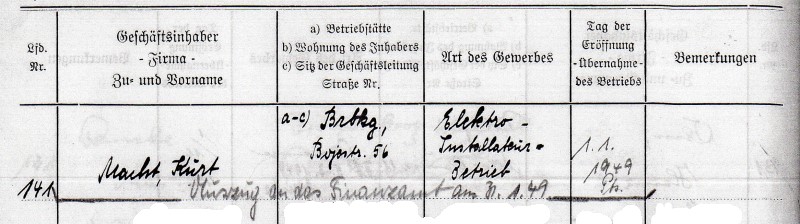 Lfd.
Nr.
Geschäftsinhaber
- Firma -
Zu- und Vorname
a) Betriebstätte
b) Wohnung des Inhabers
c) Sitz der Geschäftsleitung
Straße Nr.
Art des Gewerbes
Tag der
Eröffnung
-Übernahme-
des Betriebs
Bemerkungen
a-c) Brbkg,
Bojestr. 56
Elektro-
Installateur-
Betrieb
1.1.
1949
Macht, Kurt
141
Auszug an das Finanzamt am 1.49